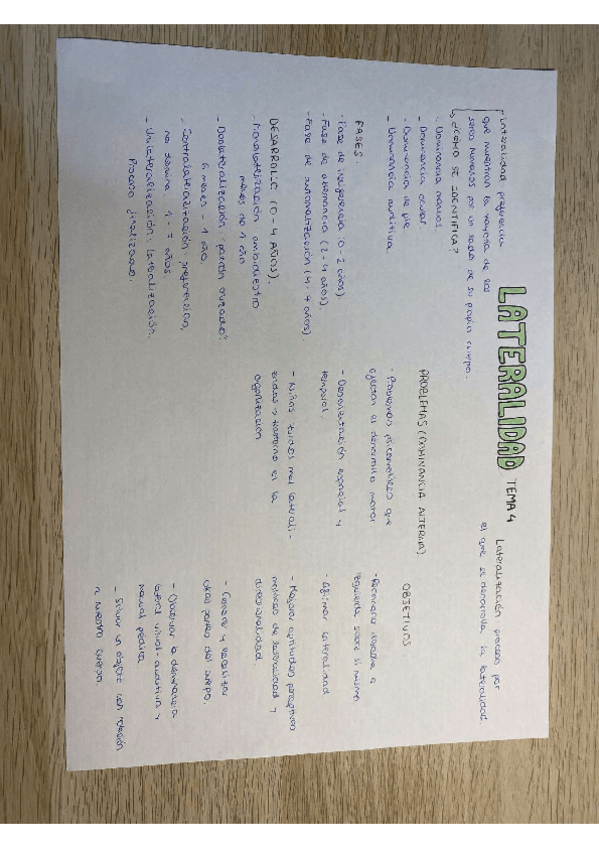 LATERALIDAD TEMA 4
- Lateralidad preferencia
que muestran la mayoría de los
seres humanos por un lado de su propio cuerpo.
¿CÓMO SE IDENTIFICA?
- Dominancia manos.
- Dominancia ocular
- Dominancia de pie
- Dominancia auditiva
FASES:
- Fase de indiferencia (0-2 años).
- Fase de alternancia (2-4 años).
- Fase de automatización (4-7 años).
DESARROLLO (0-4 AÑOS).
ambidiestro
meses de 1 año
- Duolateralización: patrón cruzado:
6 meses - 1 año.
- Contralateralización: preferencias,
no domina. 1-7 años.
- Unilateralización: lateralización.
Proceso finalizado.
PROBLEMAS (DOMINANCIA ALTERNA)
- Problemas psicomotrices que
afectan al desarrollo motor
- Desorientación espacial y
temporal.
- Niños zurdos mal laterali-
zados → trastorno en la
organización
Lateralización proceso por
el que se desarrolla la lateralidad.
OBJETIVOS
- Reconocer derecha e
izquierda sobre sí mismo
- Afirmar lateralidad
- Mejorar aptitudes perceptivo
motrices de lateralidad y
direccionalidad.
- Conocer y
otras partes del cuerpo.
- Observar la dominancia
lateral visual-auditiva y
manual pédica
- Situar un objeto con relación
a nuestro cuerpo.